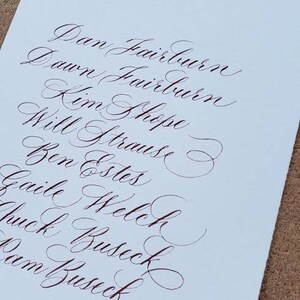 Dan Fairburn
Dawn Fairburn
Kim Shope
Will Strause
Ben Estes
Gaile Welch
Chuck Buseck
Pam Buseck